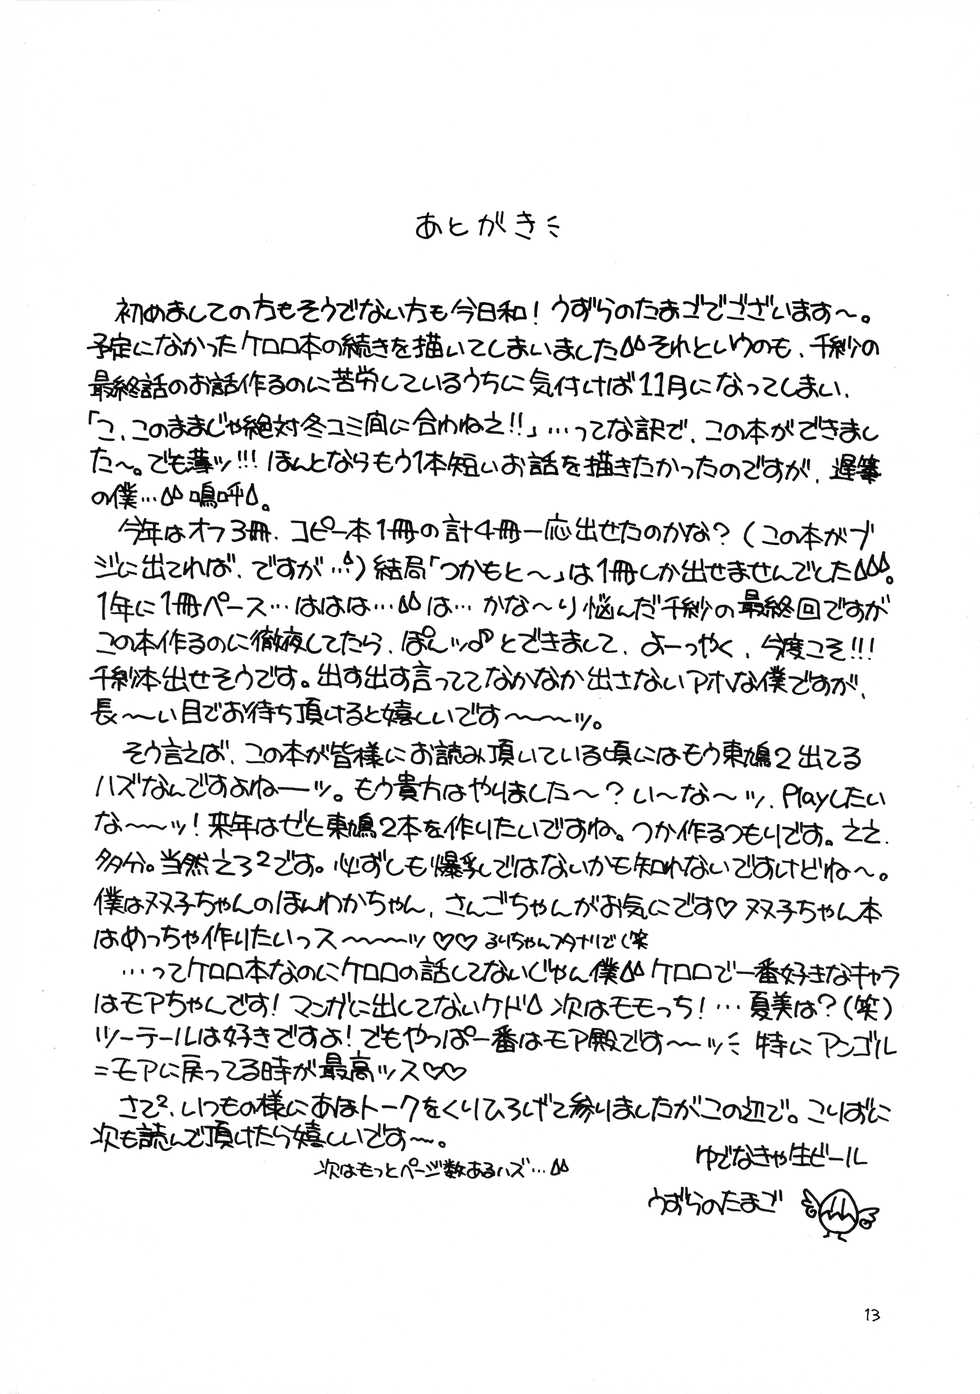 あとがき
初めましての方もそうでない方も今日和！うずらのたまごでございます〜。
予定になかったケロロ本の続きを描いてしまいました それというのも、千紗の
最終話のお話作るのに苦労しているうちに気付けば11月になってしまい、
「こ、このままじゃ絶対冬コミ間に合わねえ!!」…ってな訳で、この本ができまし
た〜。でも薄ッ!!! ほんとならもう1本短いお話を描きたかったのですが、遅筆
の僕… 嗚呼。
今年はオフ3冊、コピー本1冊の計4冊一応出せたのかな？（この本がブ
ジに出てれば、ですが…）結局「つかもと〜」は1冊しか出せませんでした。
1年に1冊ペース…ははは… は…かな〜り悩んだ千紗の最終回ですが
この本作るのに徹夜してたら、ぽんッ♪とできまして、よーっやく、今度こそ!!!
千紗本出せそうです。出す出す言っててなかなか出さないアホな僕ですが、
長〜い目でお待ち頂けると嬉しいです〜〜〜ッ。
そう言えば、この本が皆様にお読み頂いている頃にはもう東鳩2出てる
ハズなんですよねーッ。もう貴方はやりました〜？い〜な〜ッ、Playしたい
な〜〜ッ！来年はぜと東鳩2本を作りたいですね。つか作るつもりです。ええ、
多分。当然えろ²です。必ずしも爆乳ではないかも知れないですけどね〜。
僕は双子ちゃんのほんわかちゃん、さんごちゃんがお気にです♡ 双子ちゃん本
はめっちゃ作りたいっス〜〜〜ッ♡♡ るりちゃんフタナリで（笑
…ってケロロ本なのにケロロの話してないじゃん僕 ケロロで一番好きなキャラ
はモアちゃんです！マンガに出してないケド 次はモモっち！…夏美は？（笑）
ツーテールは好きですよ！でもやっぱ一番はモア殿です〜〜ッ 特にアンゴル
＝モアに戻ってる時が最高ッス♡♡
さて²、いつもの様にあほトークをくりひろげて参りましたがこの辺で。こりずに
次も読んで頂けたら嬉しいです〜。
次はもっとページ数あるハズ…
ゆでなきゃ生ビール
うずらのたまご
13